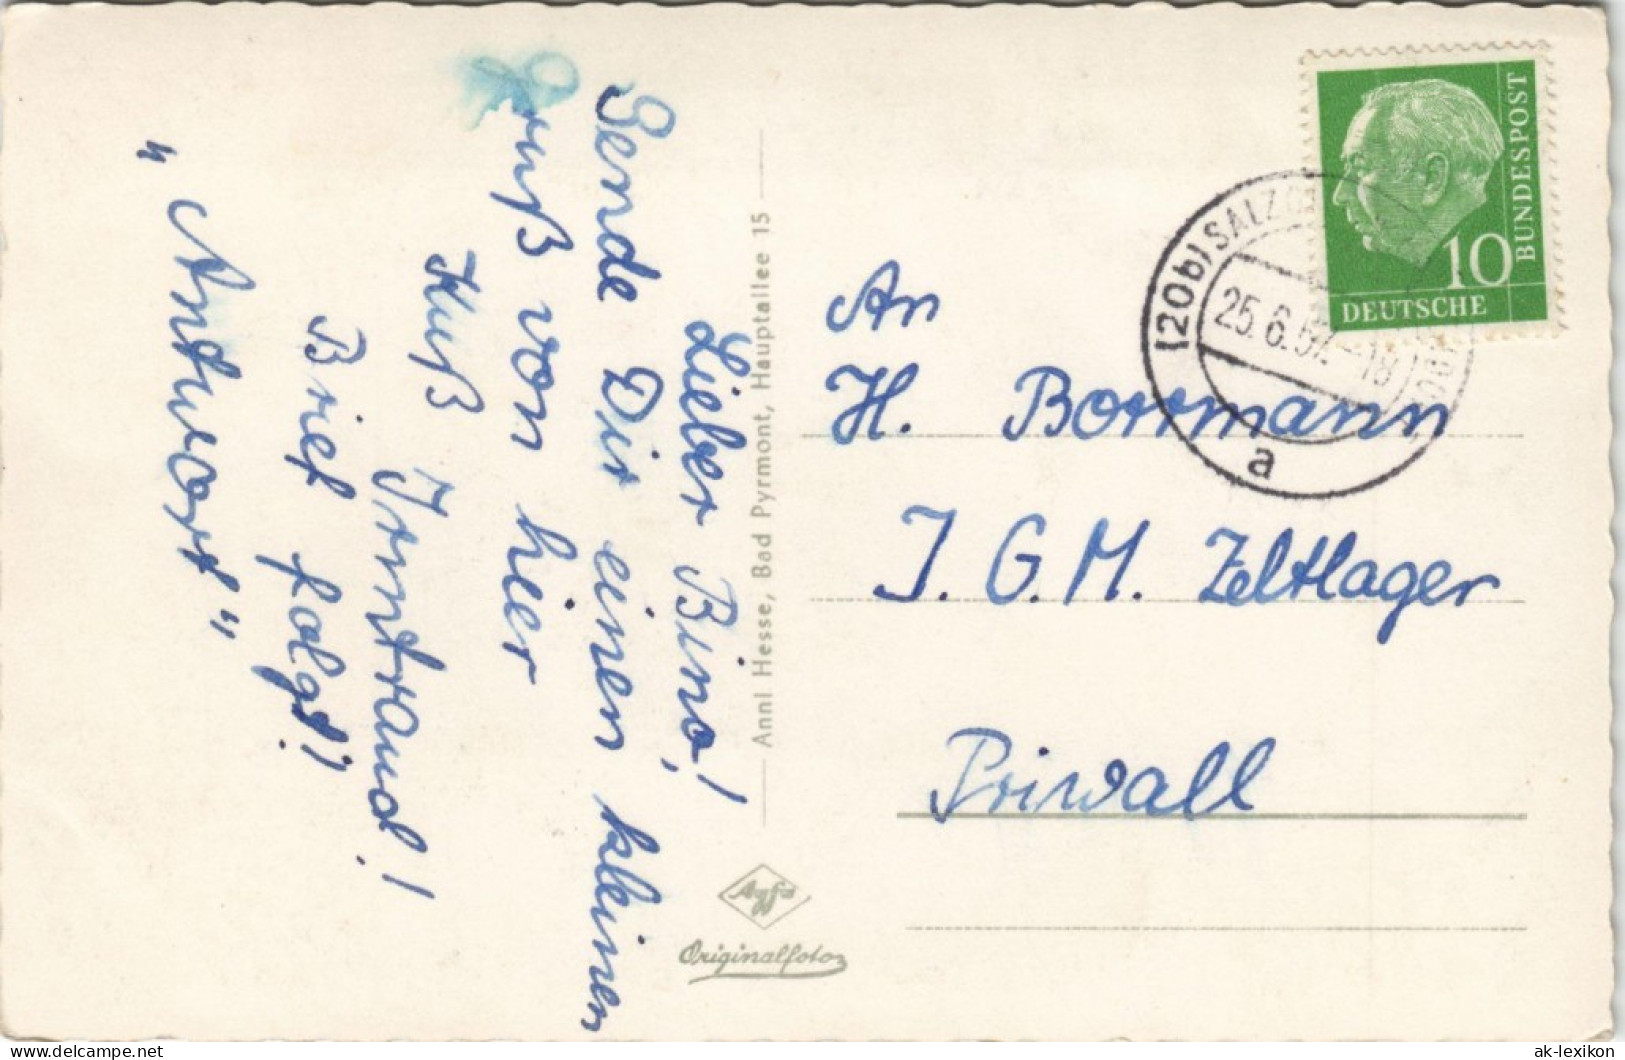 Lieber Bino!
Sende Dir einen kleinen
Gruß von hier
Kuß Irmtraud!
Brief folgt!
„Antwort“
Annl Hesse, Bad Pyrmont, Hauptallee 15
Agfa
Originalfoto
An
H. Borrmann
J. G. M. Zeltlager
Priwall
(20b) SALZG
25.6.57.-18
a
10
DEUTSCHE
BUNDESPOST
delcampe.net
ak-lexikon